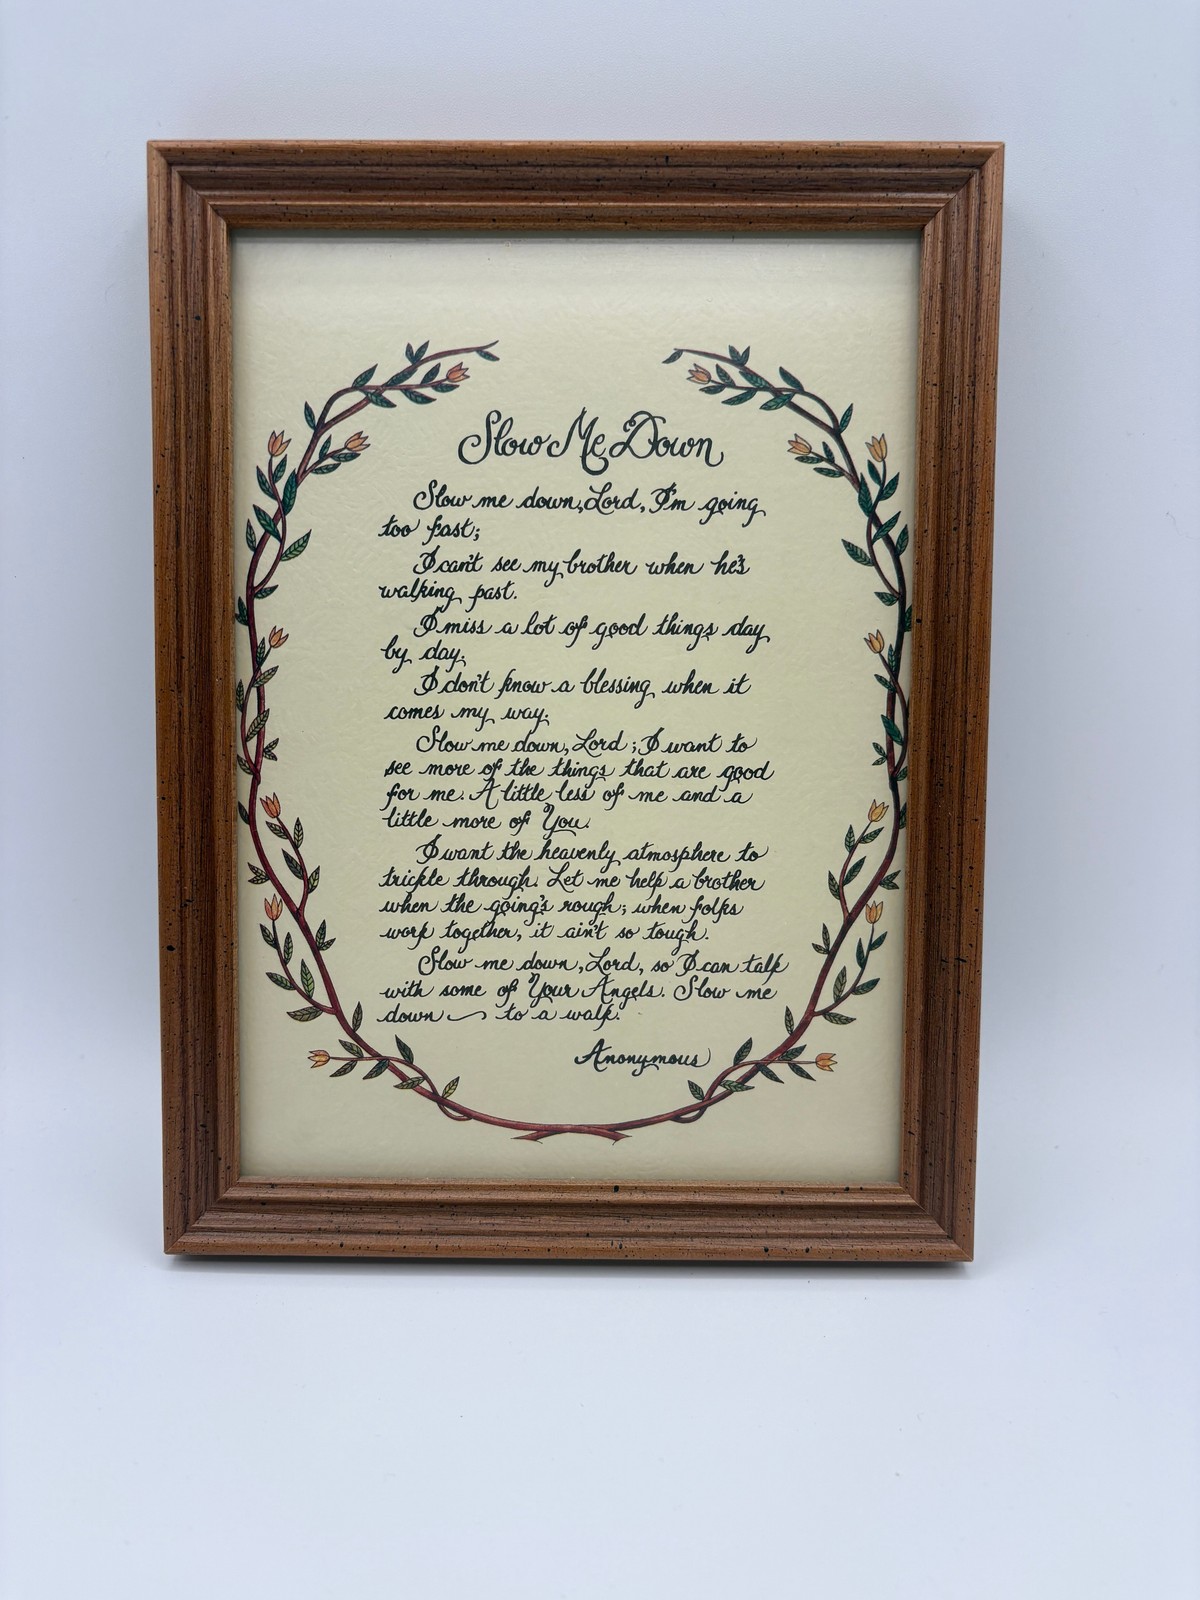 Slow Me Down
Slow me down, Lord, I'm going
too fast;
I can't see my brother when he's
walking past.
I miss a lot of good things day
by day.
I don't know a blessing when it
comes my way.
Slow me down, Lord; I want to
see more of the things that are good
for me. A little less of me and a
little more of You.
I want the heavenly atmosphere to
trickle through. Let me help a brother
when the going's rough; when folks
work together, it ain't so tough.
Slow me down, Lord, so I can talk
with some of Your Angels. Slow me
down — to a walk.
Anonymous